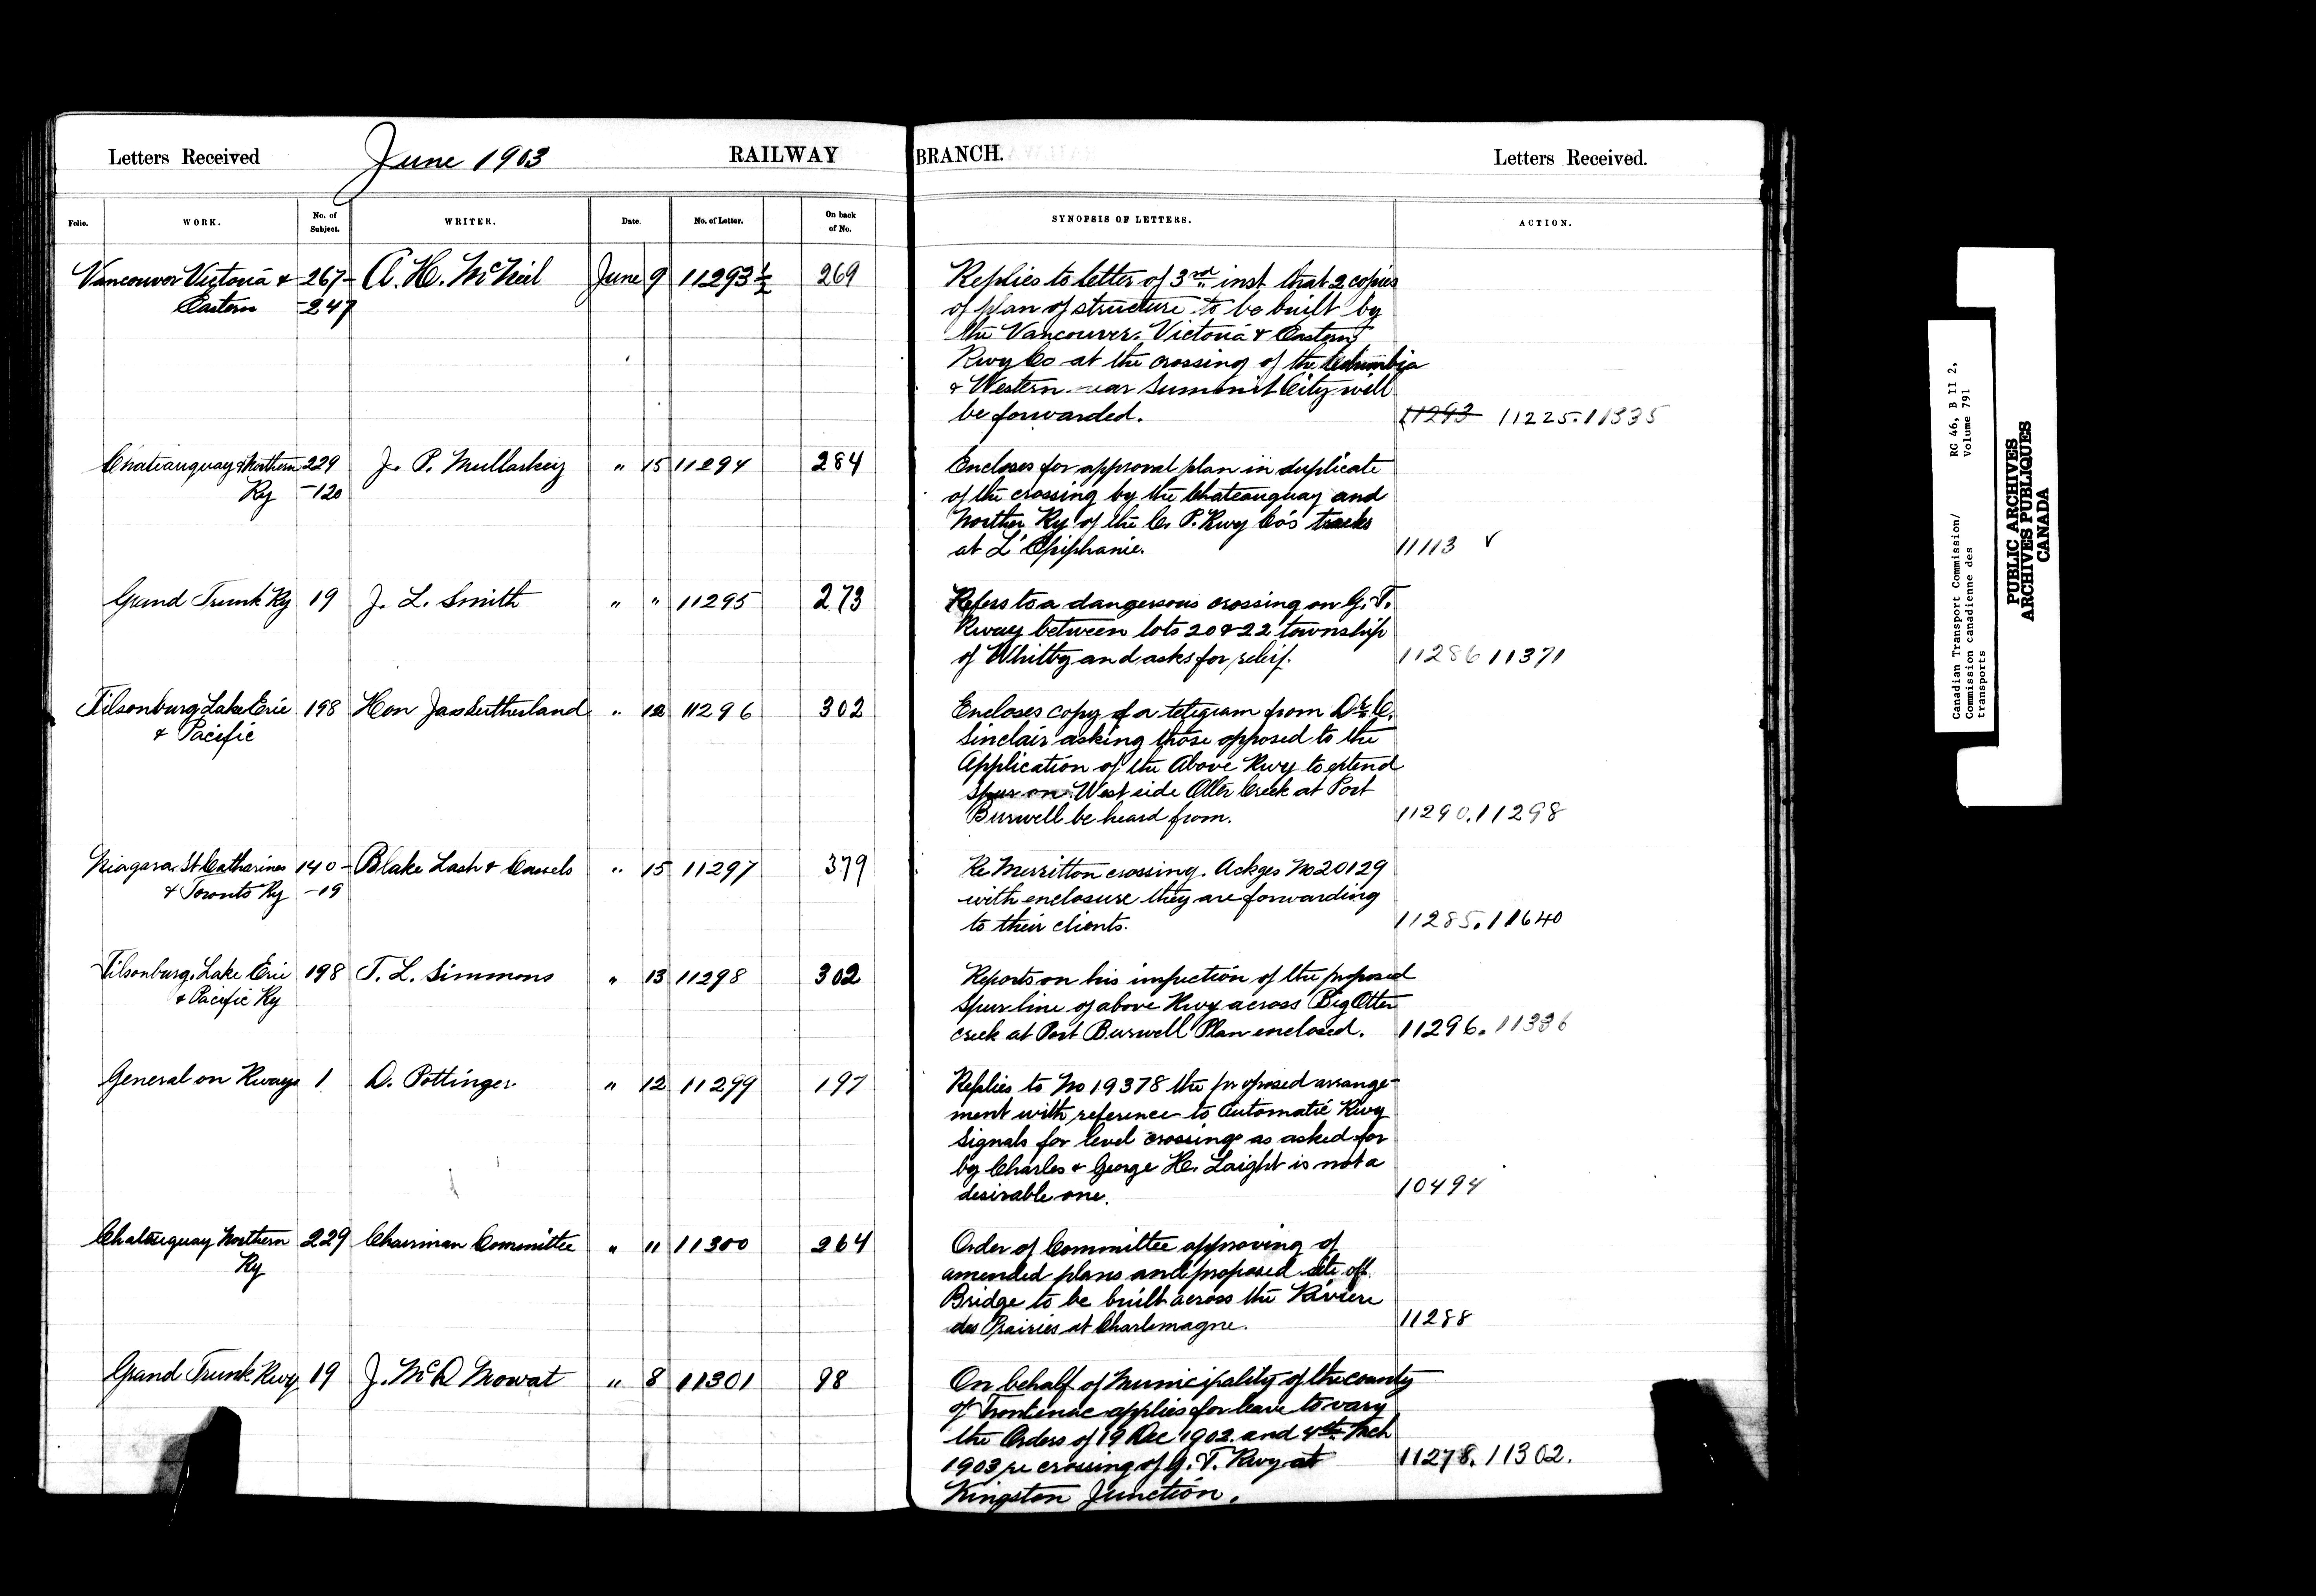 Letters Received June 1903 RAILWAY BRANCH. Letters Received.
Folio. WORK. No. of Subject. WRITER. Date. No. of Letter. On back of No. SYNOPSIS OF LETTERS. ACTION.
Vancouver Victoria & 267- A. H. McNeil June 9 11293½ 269 Replies to letter of 3rd inst that 2 copies
Eastern -247 of plan of structure to be built by
the Vancouver, Victoria & Eastern
Rwy Co at the crossing of the Columbia
& Western near Summit City will
be forwarded. 11293 11225. 11335
Chateauguay & Northern 229 J. P. Mullarkey " 15 11294 284 Encloses for approval plan in duplicate
Ry -120 of the crossing by the Chateauguay and
Norther Ry of the C. P. Rwy Co's tracks
at L'Epiphanie. 11113 ✓
Grand Trunk Ry 19 J. L. Smith " " 11295 273 Refers to a dangerous crossing on G. T.
Rway between lots 20 & 22 township
of Whitby and asks for relief. 11286 11371
Tilsonburg Lake Erie 198 Hon Jas Sutherland " 12 11296 302 Encloses copy of a telegram from Dr. C.
& Pacific Sinclair asking those opposed to the
Application of the Above Rwy to extend
spur on West side Otter Creek at Port
Burwell be heard from. 11290. 11298
Niagara St Catharines 140- Blake Lash & Cassels " 15 11297 379 Re Merritton crossing. Ackges No 20129
& Toronto Ry -19 with enclosure they are forwarding
to their clients. 11285. 11640
Tilsonburg, Lake Erie 198 T. L. Simmons " 13 11298 302 Reports on his inspection of the proposed
& Pacific Ry spur line of above Rwy across Big Otter
creek at Port Burwell Plan enclosed. 11296. 11336
General on Rways 1 D. Pottinger. " 12 11299 197 Replies to No 19378 the proposed arrange-
ment with reference to Automatic Rwy
Signals for level crossings as asked for
by Charles & George H. Laight is not a
desirable one. 10494
Chateauguay Northern 229 Chairman Committee " " 11300 264 Order of Committee approving of
Ry amended plans and proposed site of
Bridge to be built across the Riviere
des Prairies at Charlemagne. 11288
Grand Trunk Rwy 19 J. McD Mowat " 8 11301 98 On behalf of Municipality of the county
of Frontenac applies for leave to vary
the Orders of 19 Dec 1902. and 4th Mch
1903 re crossing of G. T. Rwy at 11278. 11302.
Kingston Junction.
Canadian Transport Commission/ RG 46, B II 2,
Commission canadienne des Volume 791
transports
PUBLIC ARCHIVES
ARCHIVES PUBLIQUES
CANADA